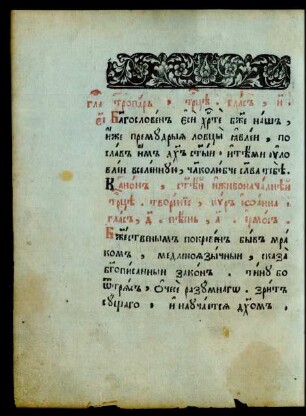 тропарь, трⷪ҇цѣ. гла́съ, и҃.
Бл҃гослове́нъ є҆сѝ хрⷭ҇тѐ бж҃е на́шъ,
и҆́же прему́дрыѧ ловцы̀ ꙗ҆вле́й, по
сла́въ и҆́мъ дх҃ъ ст҃ы́й. и҆ тѣ́ми оу҆ло
вле́й вселе́нную, чл҃вколю́бче сла́ва тебѣ̀.
Кано́нъ, ст҃ѣ́й и҆ живонача́льнѣй
трⷪ҇цѣ. творе́нїе, кѵ́ръ і҆ѡа́нна.
гла́съ, д҃. пѣ́снь, а҃. і҆рмо́съ.
Бж҃е́ственымъ покрове́нъ бы́въ мра́
комъ, медленоѧзы́чный, сказа̀
бг҃опи́санный зако́нъ. ти́ну бо
ѿтрѧ́съ, ѻ҆́чесе ра́зумнагѡ. зри́тъ
су́щаго, и҆ науча́етсѧ дх҃омъ,